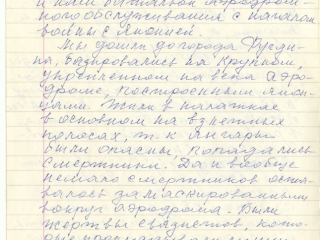 и наш батальон аэродром-
ного обслуживания с началом
войны с Японией.
Мы дошли до города
на, базировались на крупном,
укрепленном на века аэро-
дроме, построенным япон-
цами. Жили в палатках
в основном на взлетных
полосах, т.к. ангары
были опасны, попадались
смертники. Да и вообще
немало смертников оста-
валось замаскированными
вокруг аэродрома. Были
жертвы связистов, кото-
рые прокладывали